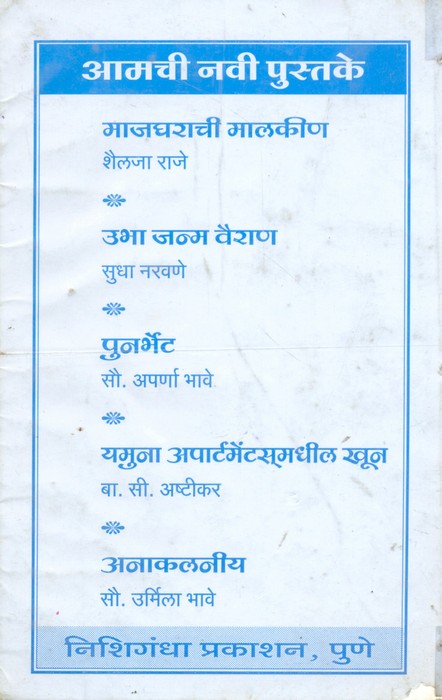 आमची नवी पुस्तके
माजघराची मालकीण
शैलजा राजे
उभा जन्म वैराण
सुधा नरवणे
पुनर्भेट
सौ. अपर्णा भावे
यमुना अपार्टमेंटस्‌मधील खून
बा. सी. अष्टीकर
अनाकलनीय
सौ. उर्मिला भावे
निशिगंधा प्रकाशन, पुणे